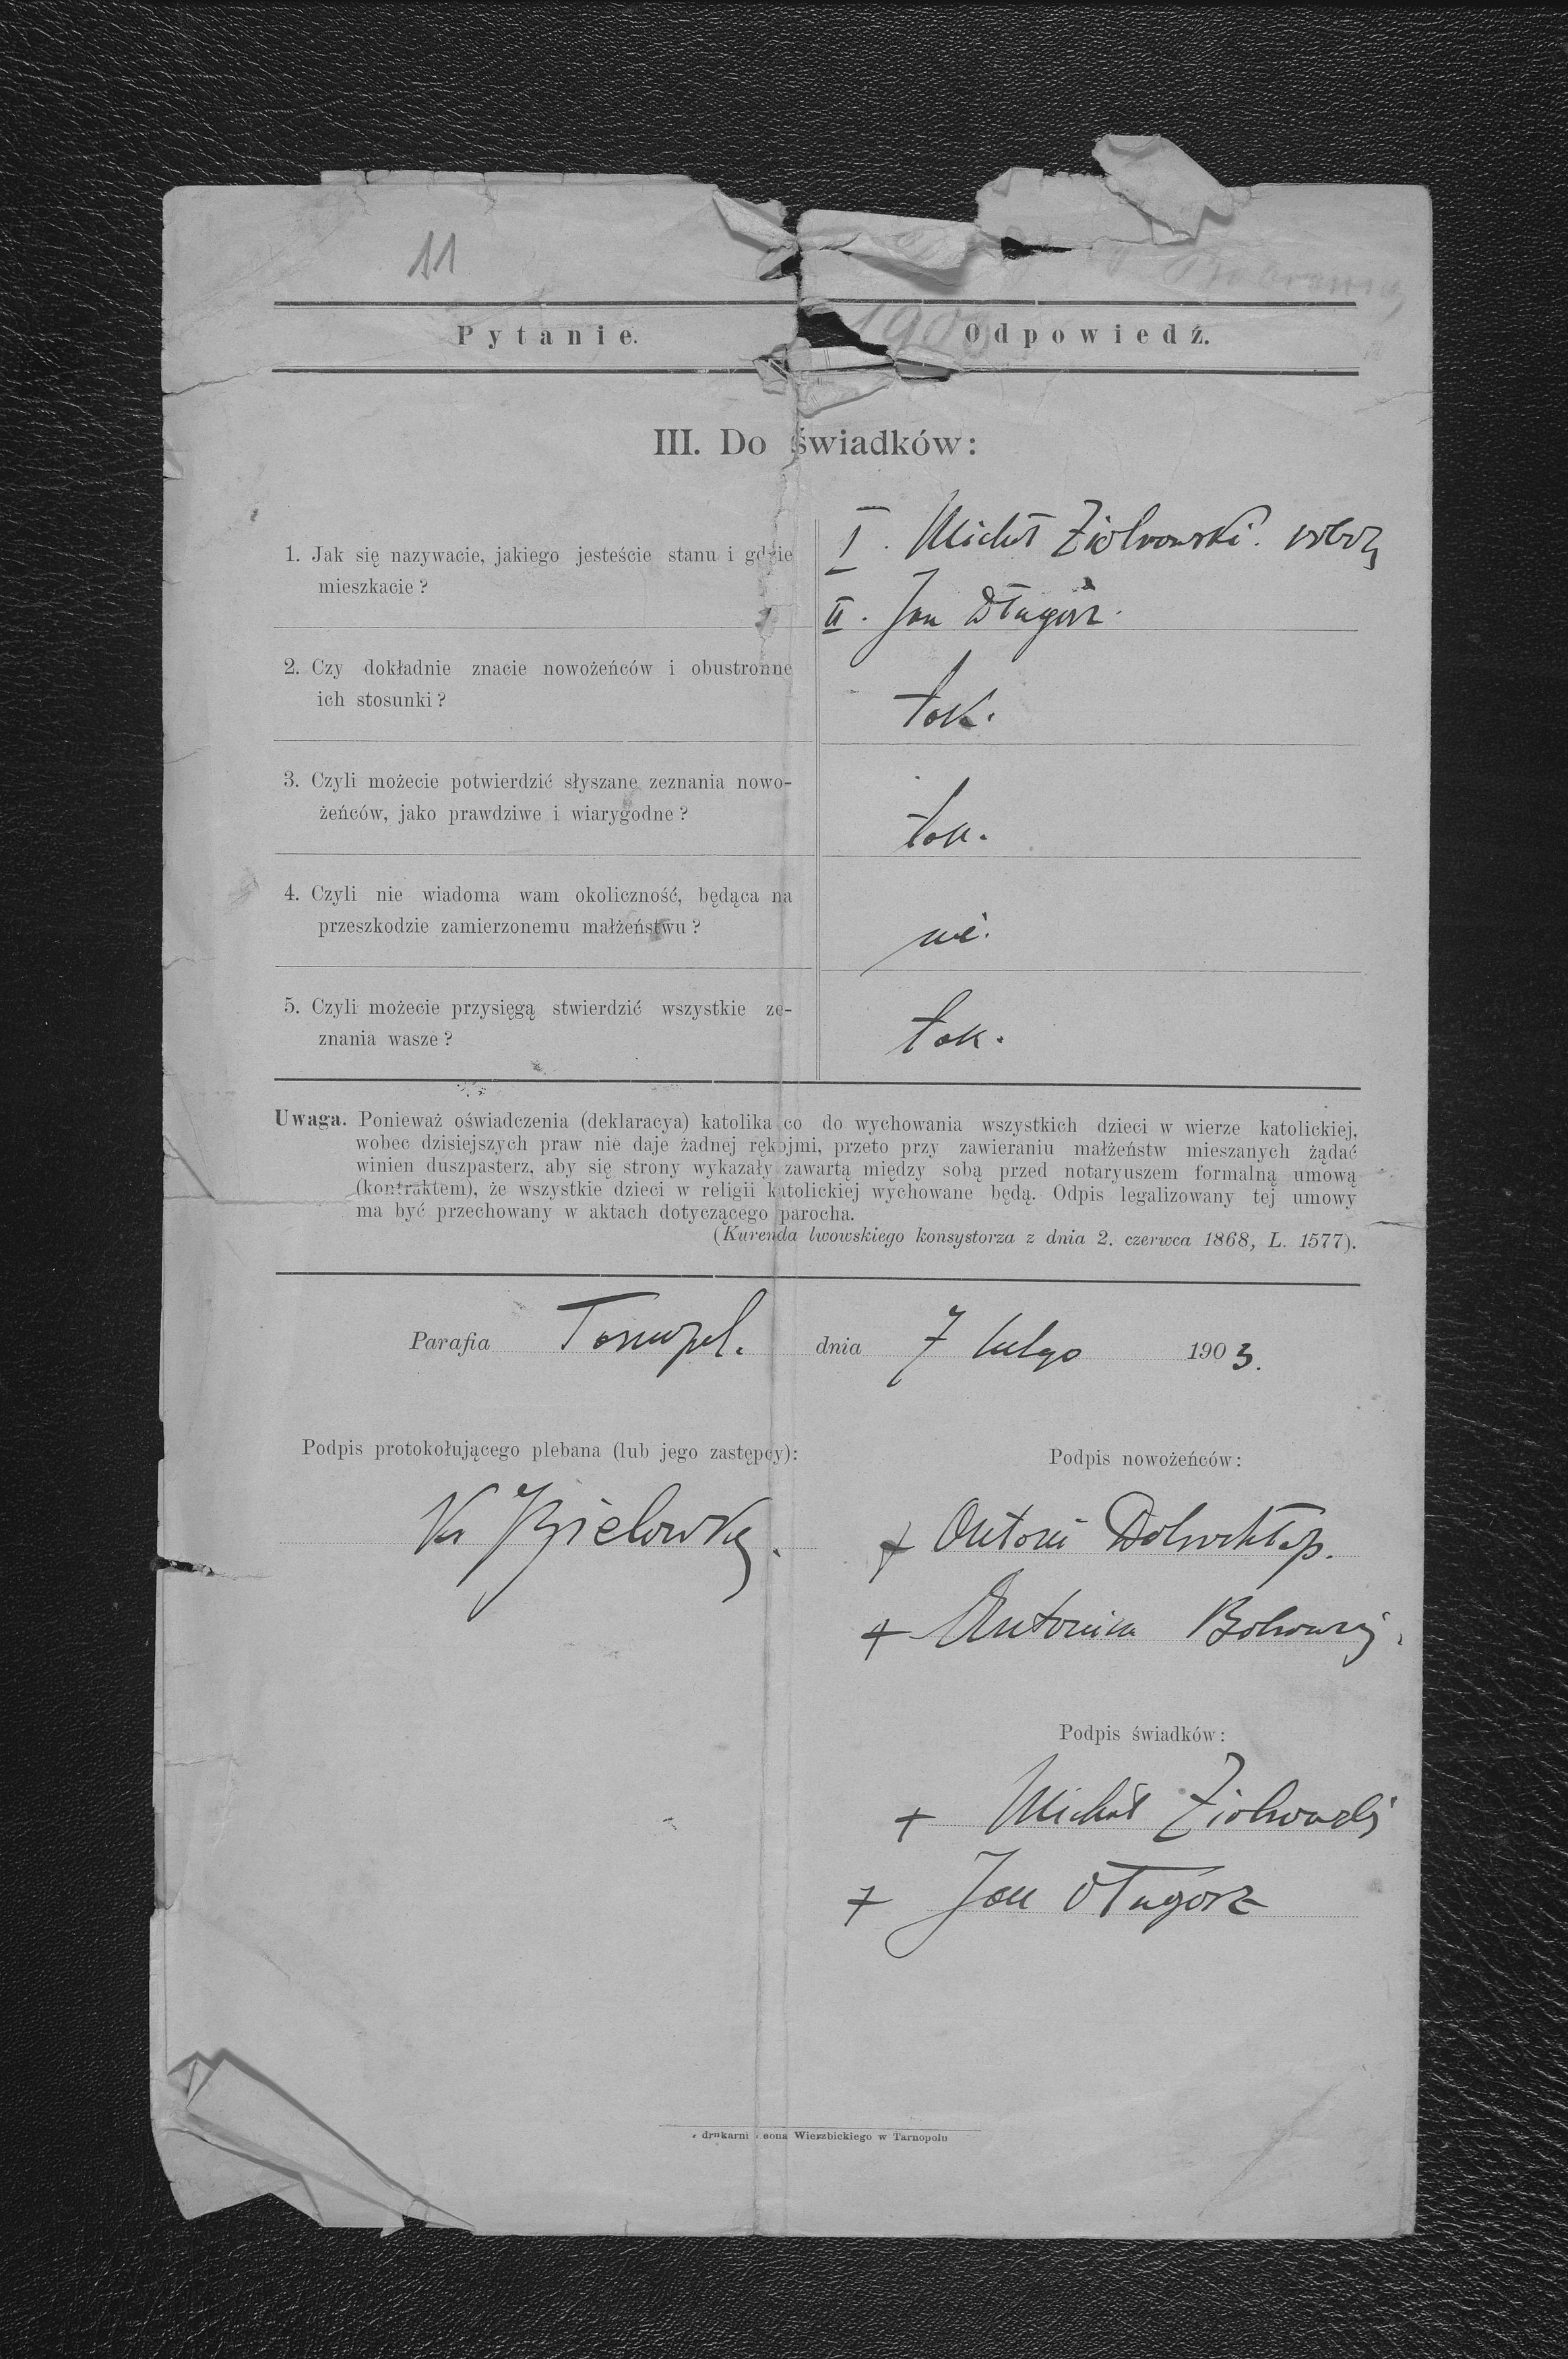 11
Pytanie. Odpowiedź.
III. Do świadków:
1. Jak się nazywacie, jakiego jesteście stanu i gdzie
mieszkacie?
I. Michał Ziolkowski.
II. Jan Długosz.
2. Czy dokładnie znacie nowożeńców i obustronne
ich stosunki?
tak.
3. Czyli możecie potwierdzić słyszane zeznania nowo-
żeńców, jako prawdziwe i wiarygodne?
tak.
4. Czyli nie wiadoma wam okoliczność, będąca na
przeszkodzie zamierzonemu małżeństwu?
nie.
5. Czyli możecie przysięgą stwierdzić wszystkie ze-
znania wasze?
tak.
Uwaga. Ponieważ oświadczenia (deklaracya) katolika co do wychowania wszystkich dzieci w wierze katolickiej,
wobec dzisiejszych praw nie daje żadnej rękojmi, przeto przy zawieraniu małżeństw mieszanych żądać
winien duszpasterz, aby się strony wykazały zawartą między sobą przed notaryuszem formalną umową
(kontraktem), że wszystkie dzieci w religii katolickiej wychowane będą. Odpis legalizowany tej umowy
ma być przechowany w aktach dotyczącego parocha.
(Kurenda lwowskiego konsystorza z dnia 2. czerwca 1868, L. 1577).
Parafia Tarnopol. dnia 7 lutego 1903.
Podpis protokołującego plebana (lub jego zastępcy):
Podpis nowożeńców:
+ Antoni
+ Antonina
Podpis świadków:
+ Michał Ziolkowski
+ Jan Długosz
drukarni Leona Wierzbickiego w Tarnopolu